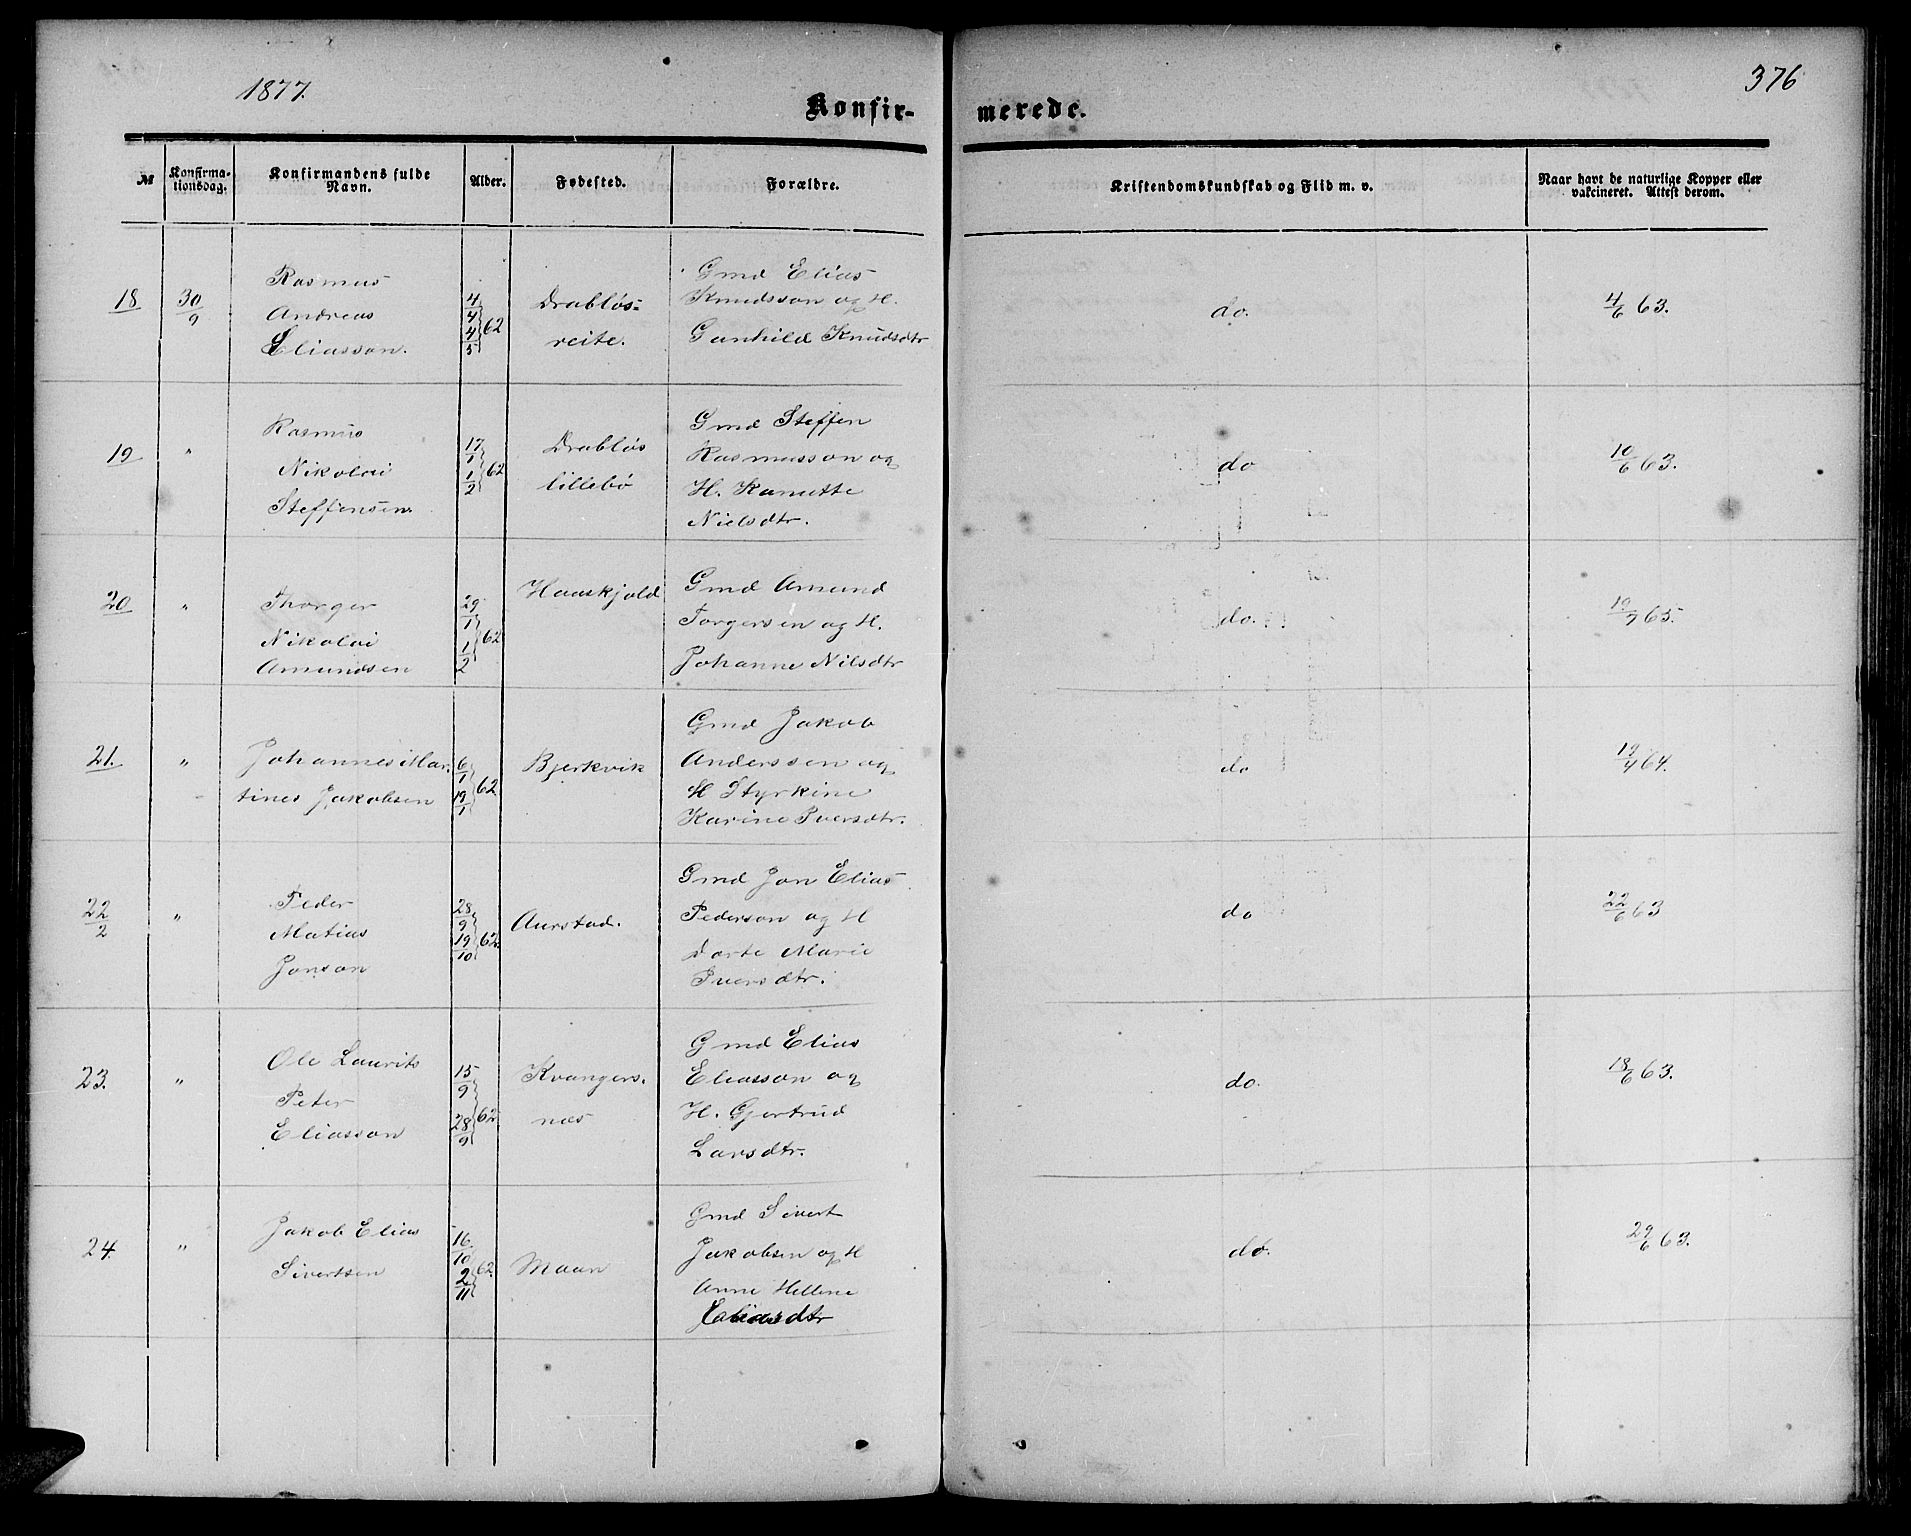 1877.
376
Konfir-
merede.
№
Konfirma-
tionsdag.
Konfirmandens fulde
Navn.
Alder.
Fødested.
Forældre.
Kristendomskundskab og Flid m. v.
Naar havt de naturlige Kopper eller
vakcineret. Attest derom.
18 30/9
Rasmus
Andreas
Eliasson.
4/4 4/5 } 62
Drabløs=
reite.
Gmd Elias
Knudsson og H.
Gunhild Knudsdtr
do.
4/6 63.
19 "
Rasmus
Nikolai
Steffensen.
17/1 1/2 } 62
Drabløs
lillebø
Gmd Steffen
Rasmusson og
H. Kanutte
Nielsdtr.
do
10/6 63.
20 "
Thorger
Nikolai
Amundsen
29/1 1/2 } 62
Haaskjold
Gmd Amund
Torgersen og H.
Johanne Nilsdtr
do.
19/7 65.
21. "
Johannes Mar
tines Jakobsen
6/1 19/1 } 62.
Bjerkvik
Gmd Jakob
Anderssen og
H Styrkine
Karine Iversdtr.
do
19/4 64.
22/2 "
Peder
Matias
Jonson
28/9 19/10 } 62.
Aurstad.
Gmd Jon Elias
Pederson og H
Dorte Marie
Iversdtr.
do
22/6 63
23. "
Ole Laurits
Peter
Eliasson
15/9 28/9 } 62
Kvangers.
næs
Gmd Elias
Eliasson og
H. Gjertrud
Larsdtr.
do.
18/6 63.
24. "
Jakob Elias
Sivertsen
16/10 2/11 } 62.
Maan
Gmd Sivert
Jakobsen og H
Anne Hellene
Eliasdtr
do.
29/6 63.